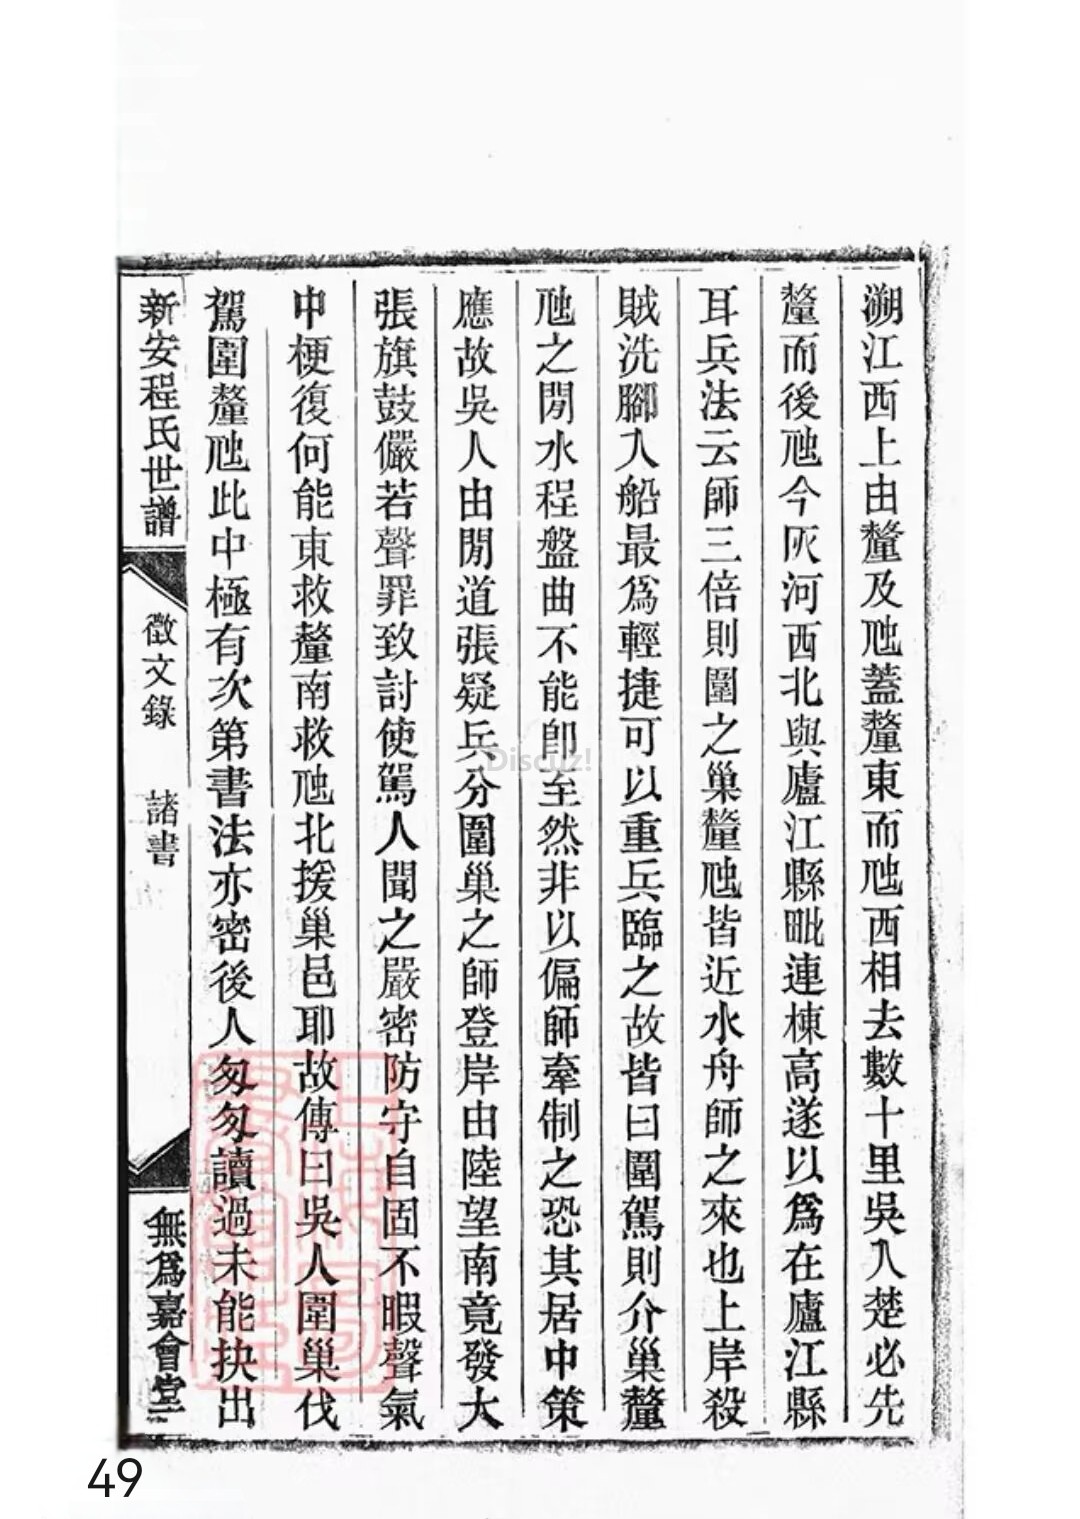 溯江西上由釐及虺蓋釐東而虺西相去數十里吳入楚必先
釐而後虺今灰河西北與廬江縣毗連棟高遂以爲在廬江縣
耳兵法云師三倍則圍之巢釐虺皆近水舟師之來也上岸殺
賊洗腳入船最爲輕捷可以重兵臨之故皆曰圍駕則介巢釐
虺之閒水程盤曲不能卽至然非以偏師牽制之恐其居中策
應故吳人由閒道張疑兵分圍巢之師登岸由陸望南竟發大
張旗鼓儼若聲罪致討使駕人聞之嚴密防守自固不暇聲氣
中梗復何能東救釐南救虺北援巢邑耶故傳曰吳人圍巢伐
駕圍釐虺此中極有次第書法亦密後人匆匆讀過未能抉出
新安程氏世譜
徵文錄 諸書
無爲嘉會堂
Discuz!
49